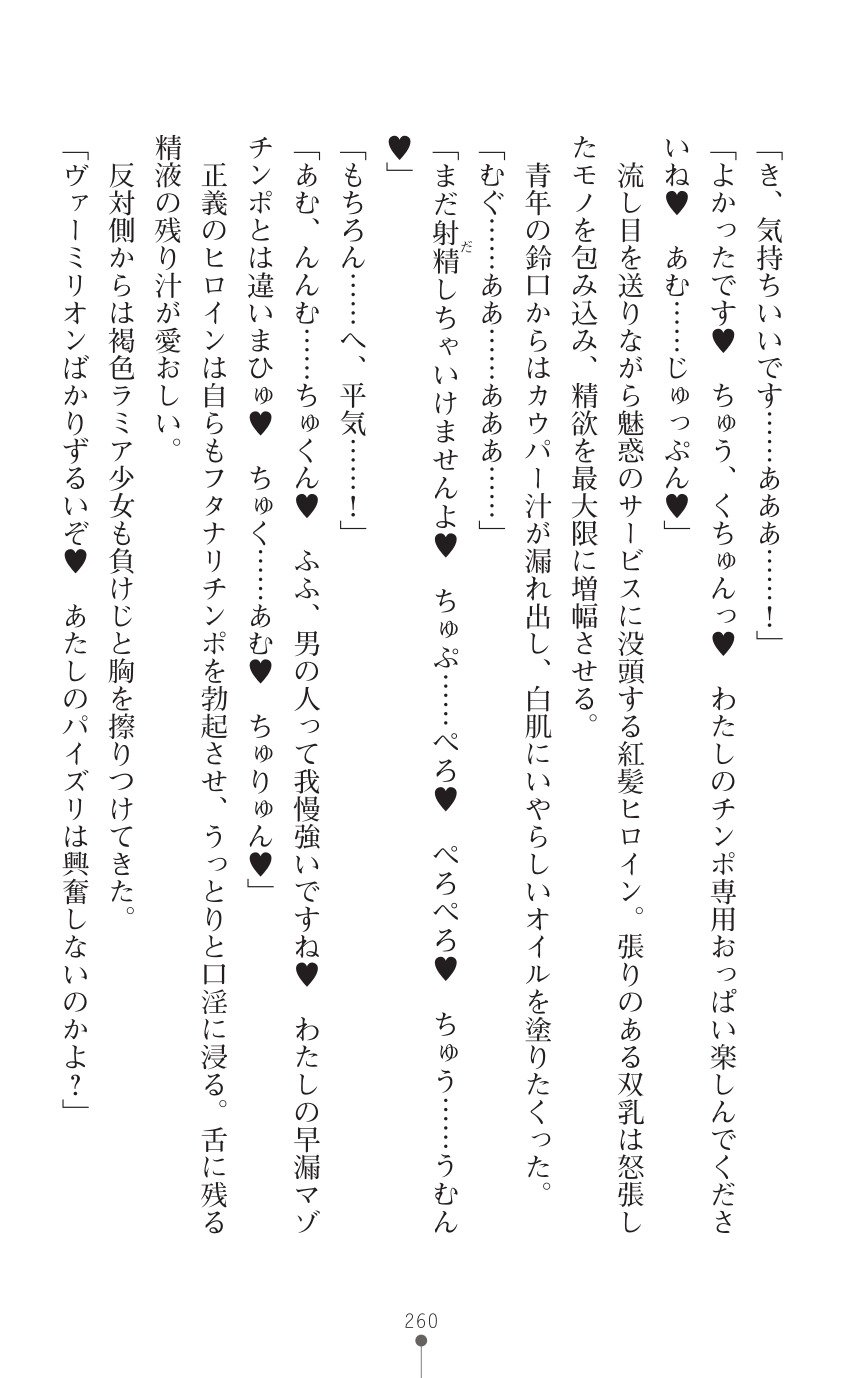 「き、気持ちいいです……あああ……！」
「よかったです♥　ちゅう、くちゅんっ♥　わたしのチンポ専用おっぱい楽しんでくださ
いね♥　あむ……じゅっぷん♥」
　流し目を送りながら魅惑のサービスに没頭する紅髪ヒロイン。張りのある双乳は怒張し
たモノを包み込み、精欲を最大限に増幅させる。
　青年の鈴口からはカウパー汁が漏れ出し、白肌にいやらしいオイルを塗りたくった。
「むぐ……ああ……あああ……」
「まだ射精だしちゃいけませんよ♥　ちゅぷ……ぺろ♥　ぺろぺろ♥　ちゅう……うむん
♥」
「もちろん……へ、平気……！」
「あむ、んんむ……ちゅくん♥　ふふ、男の人って我慢強いですね♥　わたしの早漏マゾ
チンポとは違いまひゅ♥　ちゅく……あむ♥　ちゅりゅん♥」
　正義のヒロインは自らもフタナリチンポを勃起させ、うっとりと口淫に浸る。舌に残る
精液の残り汁が愛おしい。
　反対側からは褐色ラミア少女も負けじと胸を擦りつけてきた。
「ヴァーミリオンばかりずるいぞ♥　あたしのパイズリは興奮しないのかよ？」
260